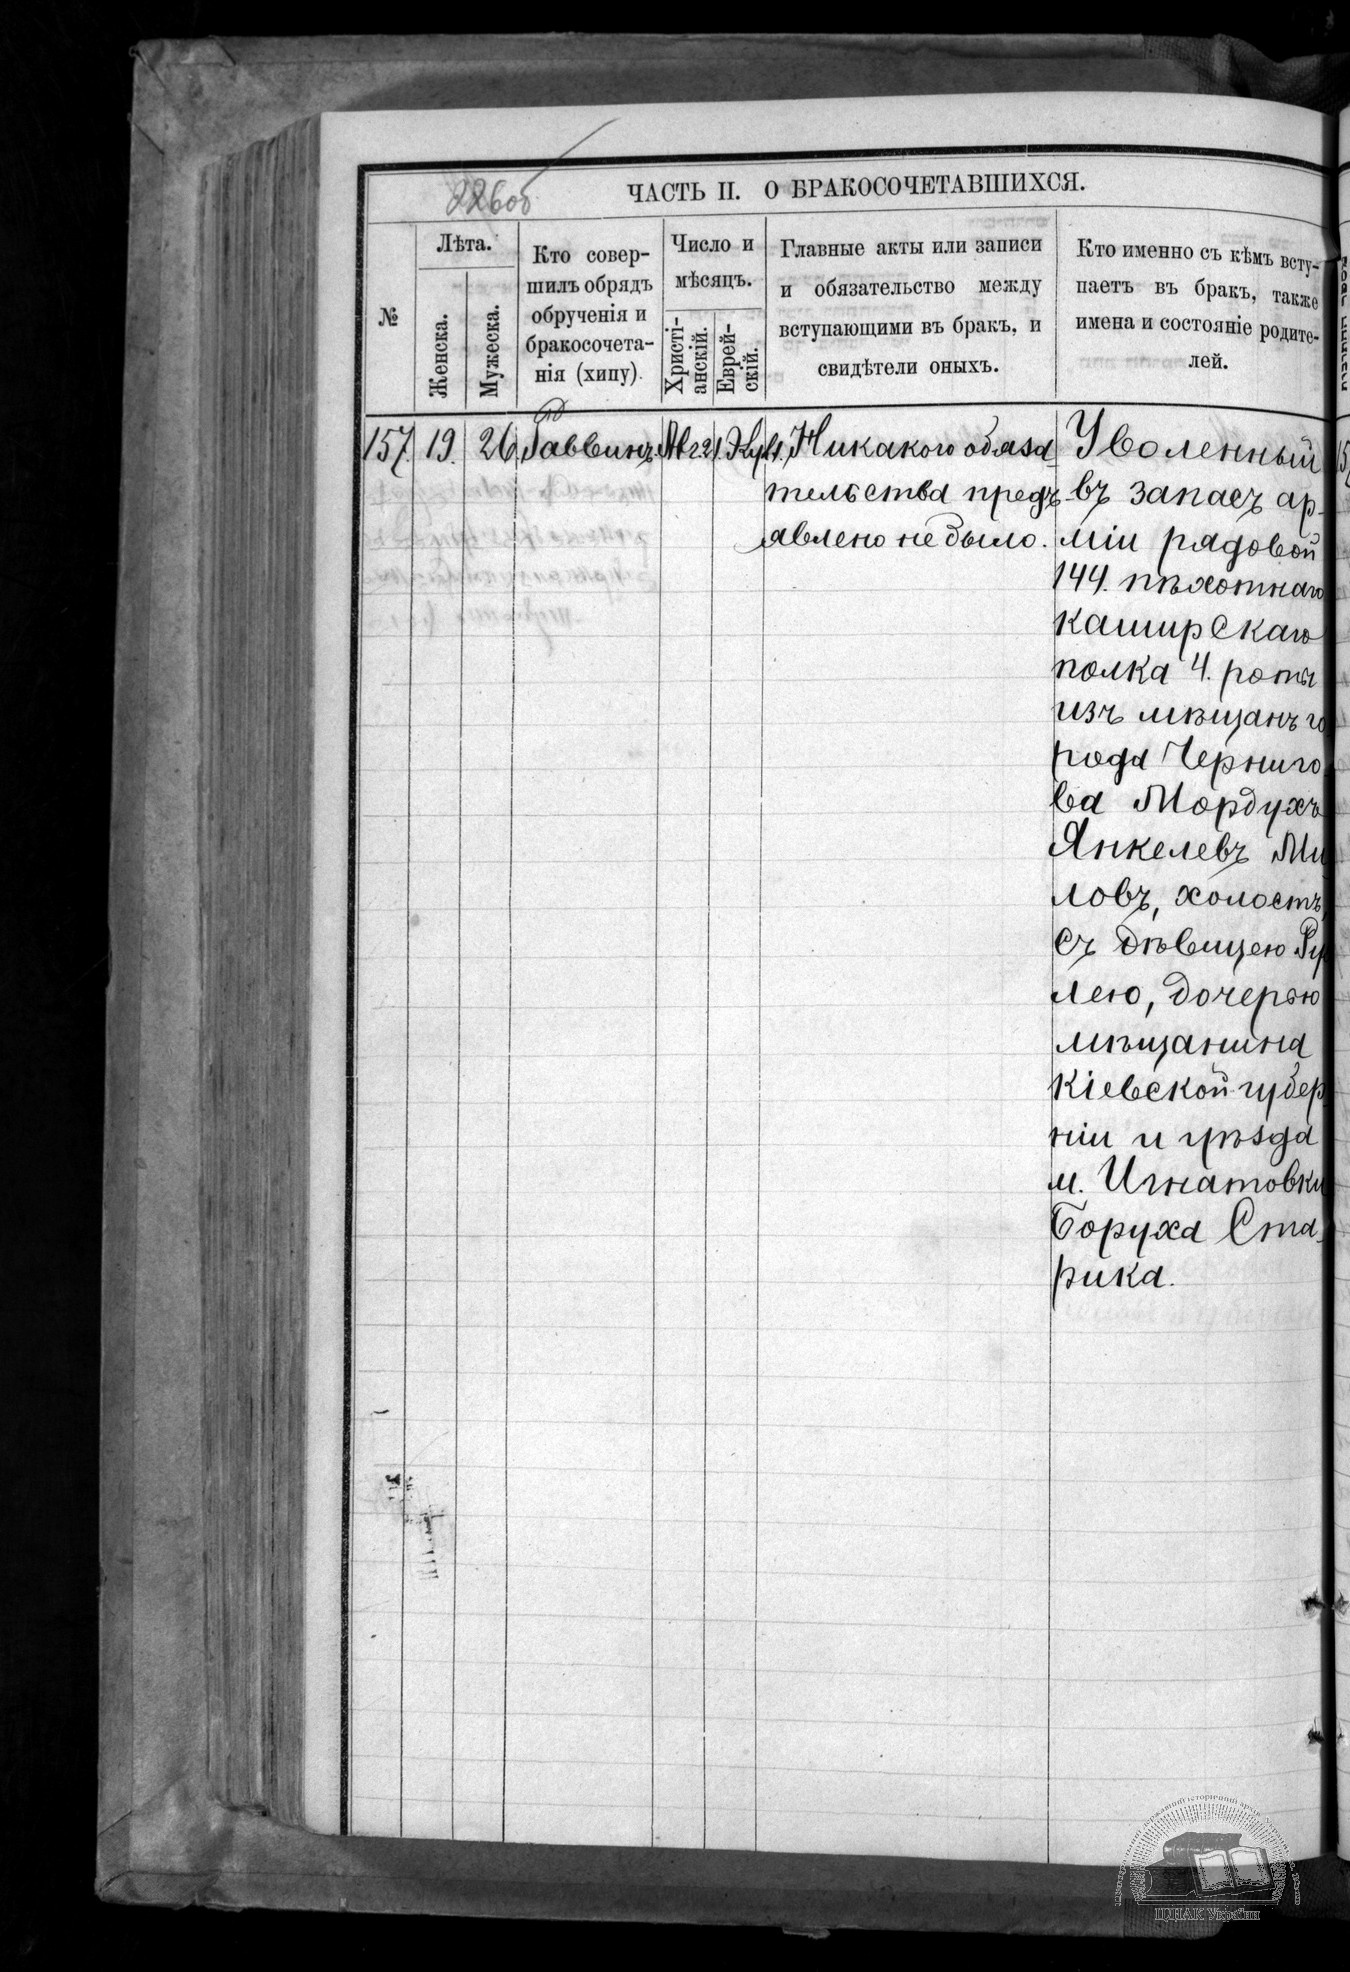 226об
ЧАСТЬ II. О БРАКОСОЧЕТАВШИХСЯ.
№
Лѣта.
Женска.
Мужеска.
Кто совер-
шилъ обрядъ
обрученія и
бракосочета-
нія (хипу).
Число и
мѣсяцъ.
Христі-
анскій.
Еврей-
скій.
Главные акты или записи
и обязательство между
вступающими въ бракъ, и
свидѣтели оныхъ.
Кто именно съ кѣмъ всту-
паетъ въ бракъ, также
имена и состояніе родите-
лей.
157. 19. 26. Раввинъ Авг. 21. Никакого обяза-
тельства предъ-
явлено не было.
Уволенный
въ запасъ ар-
міи рядовой
144. пѣхотнаго
Каширскаго
полка 4. роты
изъ мѣщанъ го
рода Черниго
ва Мордухъ
Янкелевъ Ми
ловъ, холостъ,
съ дѣвицею Ру
лею, дочерью
мѣщанина
Кіевской губер
ніи и уѣзда
м. Игнатовки
Боруха Ста-
рика.
ЦДІАК України